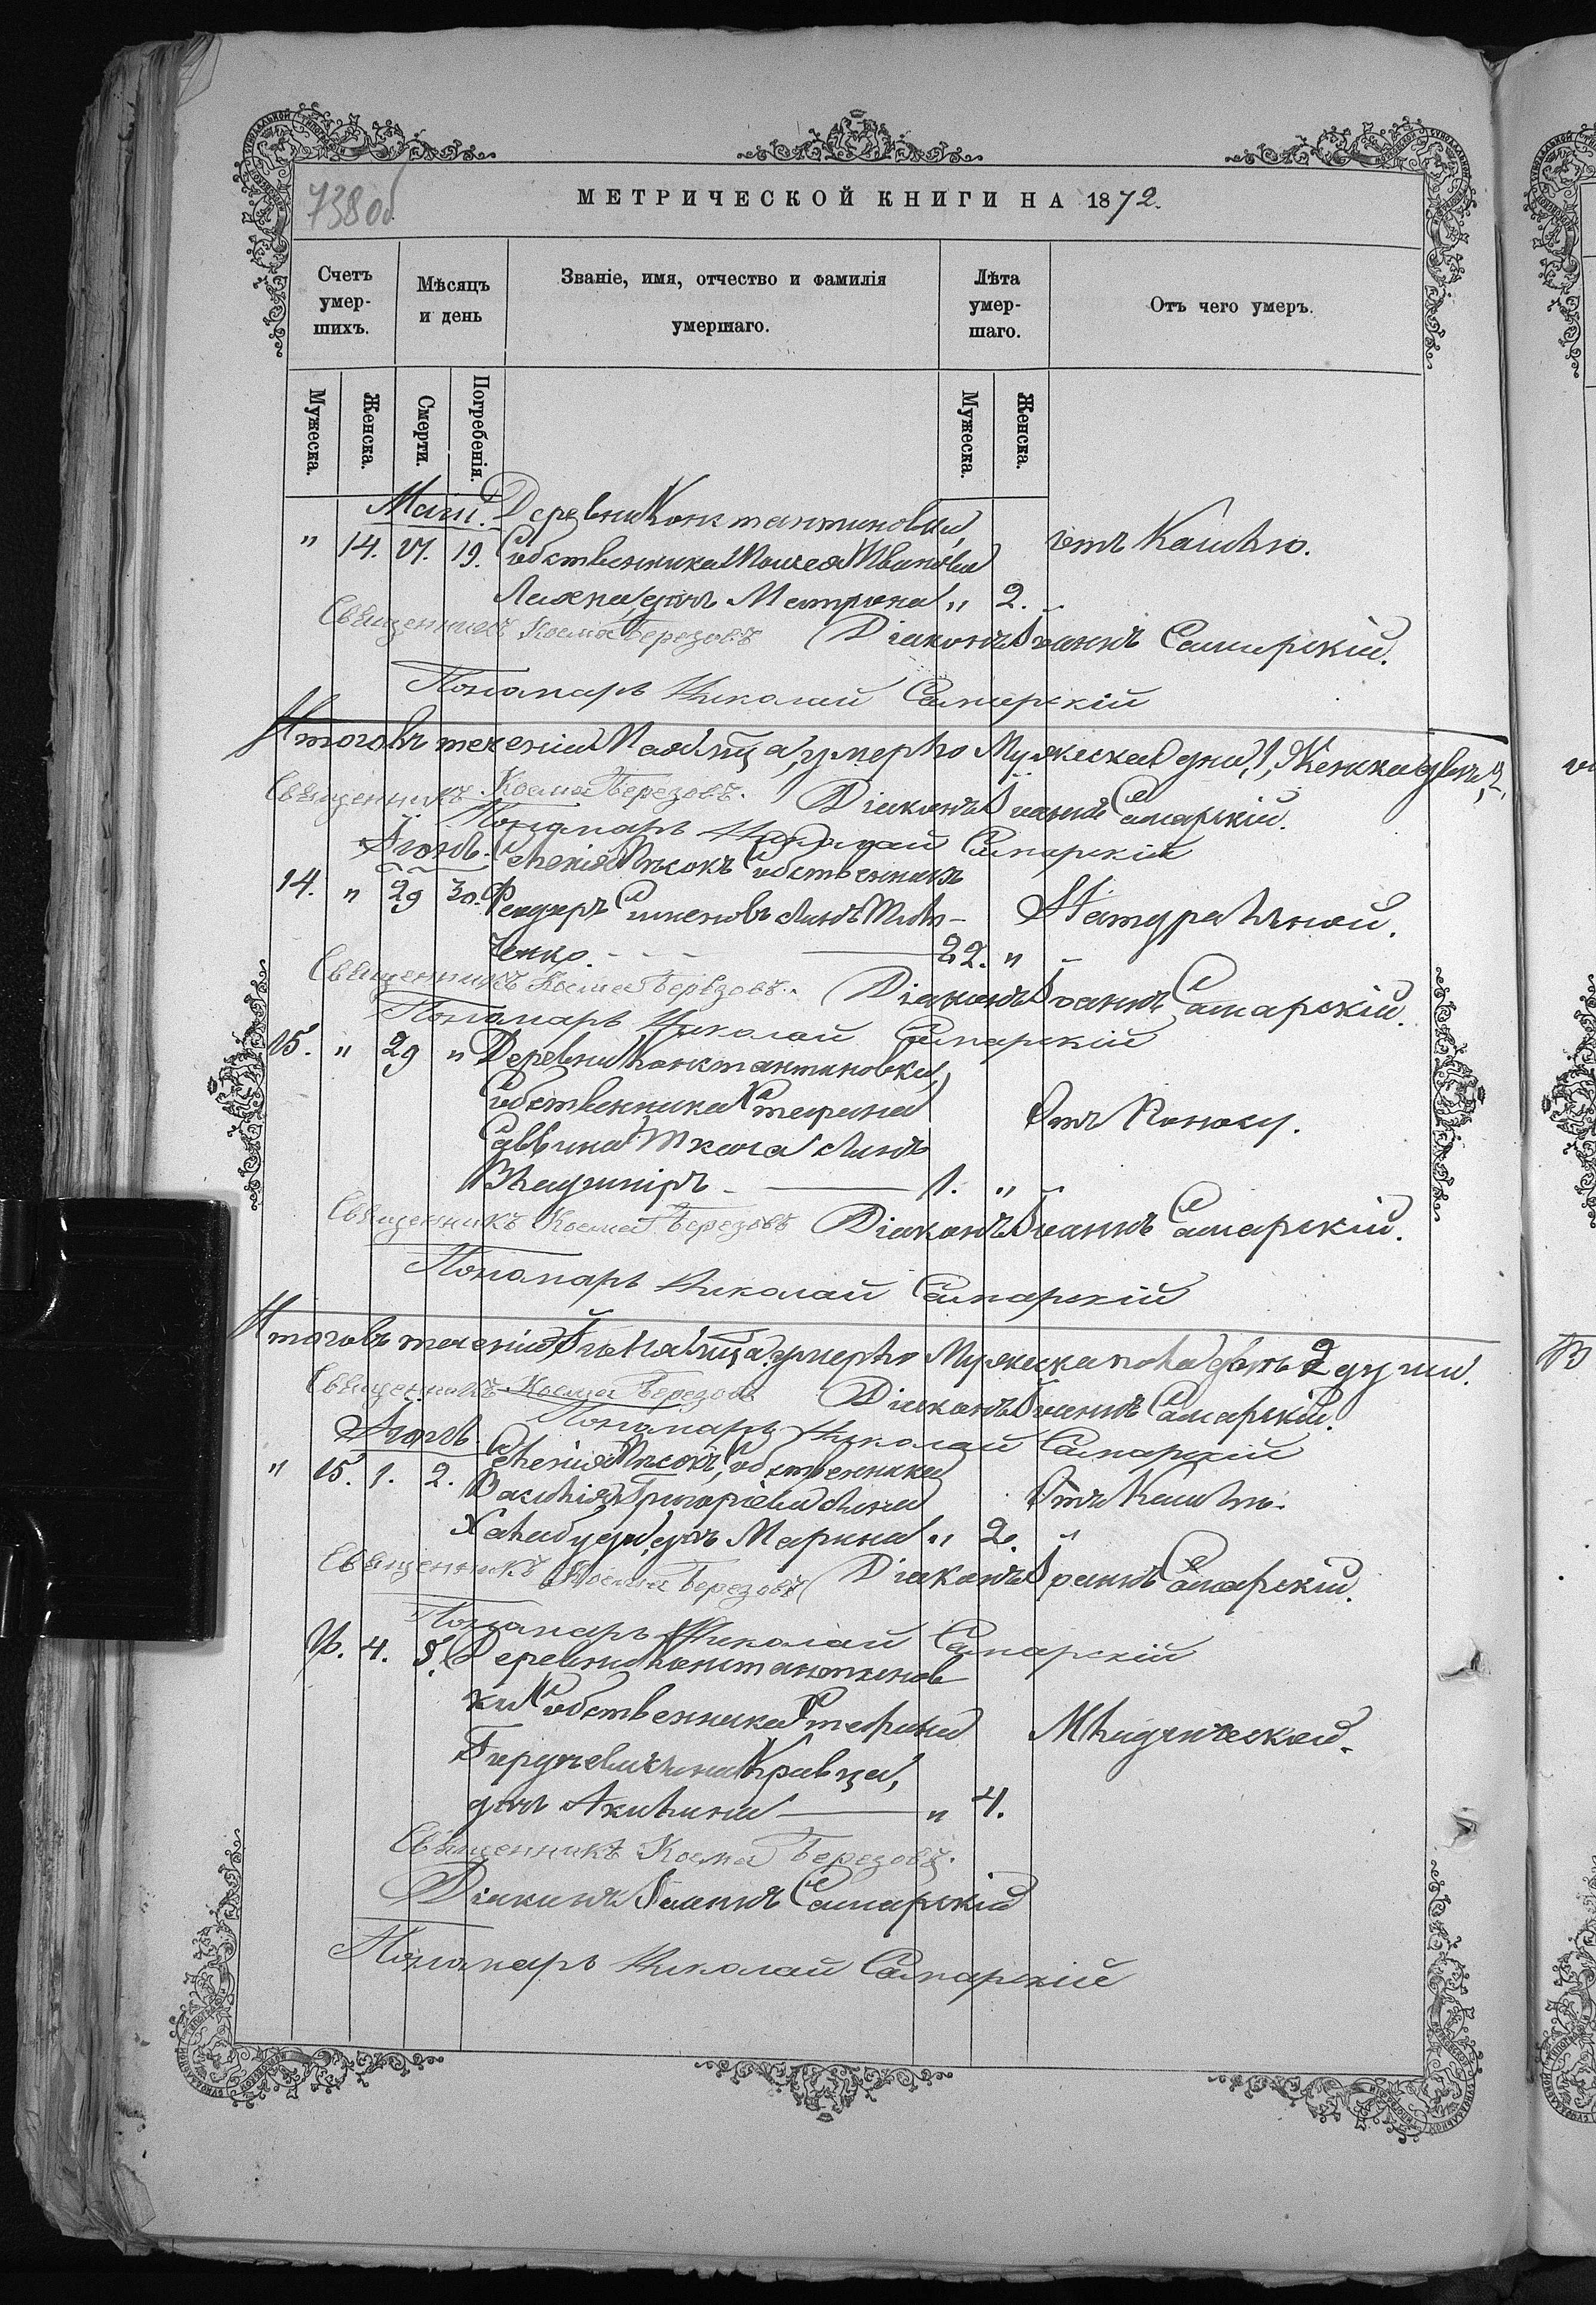 738 об
МЕТРИЧЕСКОЙ КНИГИ НА 1872.
Счетъ умер-шихъ.
Мѣсяцъ и день
Званіе, имя, отчество и фамилія умершаго.
Лѣта умер-шаго.
Отъ чего умеръ.
Мужеска.
Женска.
Смерти.
Погребенія.
Мужеска.
Женска.
Маій. Деревни Константиновки,
" 14. 17. 19. Собственника Моисея Иванова отъ Кашлю.
дочь Матрона " 2.
Священникъ Косма Березовъ Діаконъ Іоаннъ Самарскій.
Пономарь Николай Самарскій
Итого въ теченіи Маія м̃ца умерло Мужеска одна, 1, Женска двѣ, 2,
Священникъ Косма Березовъ. Діаконъ Іоаннъ Самарскій.
Пономарь Николай Самарскій
Іюнь. Селенія Пѣсокъ Собственникъ
14. " 29 30. Феодоръ Симеоновъ сынъ Натуральной.
ченко. 22. "
Священникъ Косма Березовъ. Діаконъ Іоаннъ Самарскій.
Пономарь Николай Самарскій
15. " 29 " Деревни Константиновки,
Собственника Стефана Отъ Поносу.
Саввина Ткача сынъ
Владиміръ 1. "
Священникъ Косма Березовъ Діаконъ Іоаннъ Самарскій.
Пономарь Николай Самарскій
Итого въ теченіи Іюня м̃ца умерло Мужеска пола двѣ 2 души.
Священникъ Косма Березовъ Діаконъ Іоаннъ Самарскій.
Пономарь Николай Самарскій
Іюль. Селенія Пѣсокъ, Собственника
" 15. 1. 2. Василія Григоріева сына Отъ Кашлю.
дочь Марина " 2. "
Священникъ Косма Березовъ Діаконъ Іоаннъ Самарскій.
Пономарь Николай Самарскій
16. 4. 5. Деревни Константинов
ки Собственника Стефана Младенческой.
Кравца,
дочь Акилина " 4.
Священникъ Косма Березовъ.
Діаконъ Іоаннъ Самарскій
Пономарь Николай Самарскій